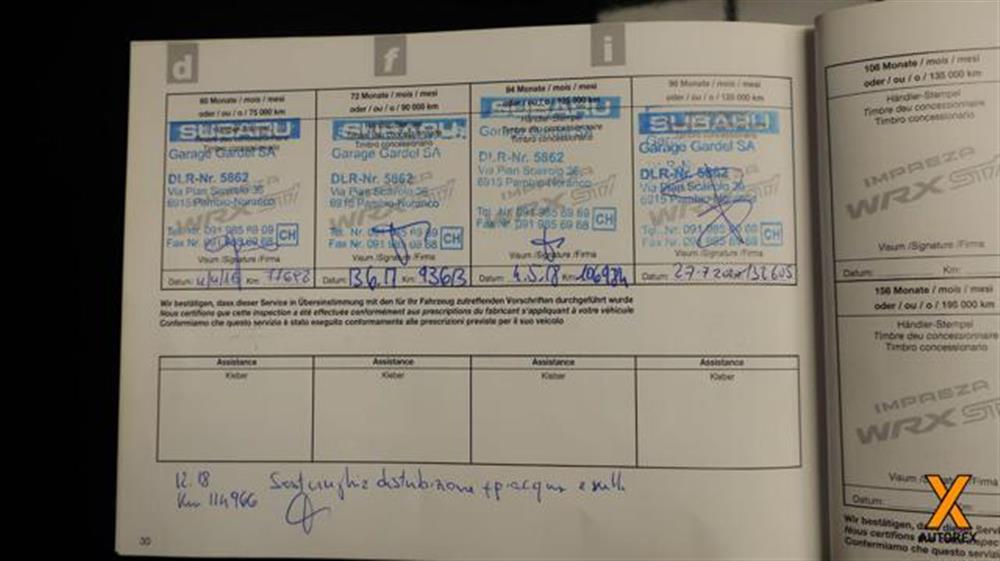 d
f
i
60 Monate / mois / mesi
oder / ou / o / 75 000 km
SUBARU
Garage Gardel SA
DLR-Nr. 5862
Via Pian Scairolo 36
6915 Pambio-Noranco
Tel. Nr. 091 985 69 69
Fax Nr. 091 985 69 68
CH
Visum /Signature /Firma
Datum: Km: 77692
72 Monate / mois / mesi
oder / ou / o / 90 000 km
SUBARU
Garage Gardel SA
DLR-Nr. 5862
Via Pian Scairolo 36
6915 Pambio-Noranco
Tel. Nr. 091 985 69 69
Fax Nr. 091 985 69 68
CH
Visum /Signature /Firma
Datum: 13.6.17 Km: 93613
84 Monate / mois / mesi
oder / ou / o / 105 000 km
SUBARU
DLR-Nr. 5862
Via Pian Scairolo 36
6915 Pambio-Noranco
Tel. Nr. 091 985 69 69
Fax Nr. 091 985 69 68
CH
Visum /Signature /Firma
Datum: 4.5.18 Km:
96 Monate / mois / mesi
oder / ou / o / 120 000 km
SUBARU
Garage Gardel SA
DLR-Nr. 5862
Via Pian Scairolo 36
6915 Pambio-Noranco
Tel. Nr. 091 985 69 69
Fax Nr. 091 985 69 68
CH
Visum /Signature /Firma
132605
Wir bestätigen, dass dieser Service in Übereinstimmung mit den für Ihr Fahrzeug zutreffenden Vorschriften durchgeführt wurde
Nous certifions que cette inspection a été effectuée conformément aux prescriptions du fabricant s'appliquant à votre véhicule
Confermiamo che questo servizio è stato eseguito conformamente alle prescrizioni previste per il suo veicolo
Assistance
Kleber
Assistance
Kleber
Assistance
Kleber
Assistance
Kleber
12.18
Km 114966
distribuzione + p. acqua e rulli
30
108 Monate / mois / mesi
oder / ou / o / 135 000 km
Händler-Stempel
Timbre du concessionnaire
Timbro concessionario
IMPREZA
WRX STI
Visum /Signature /Firma
Datum: Km:
156 Monate / mois / mesi
oder / ou / o / 195 000 km
Händler-Stempel
Timbre du concessionnaire
Timbro concessionario
IMPREZA
WRX STI
Visum /Signature /Firma
Datum:
Wir bestätigen, dass dieser Serv
Nous certifions
Confermiamo che questo servizio
X
AUTOREX